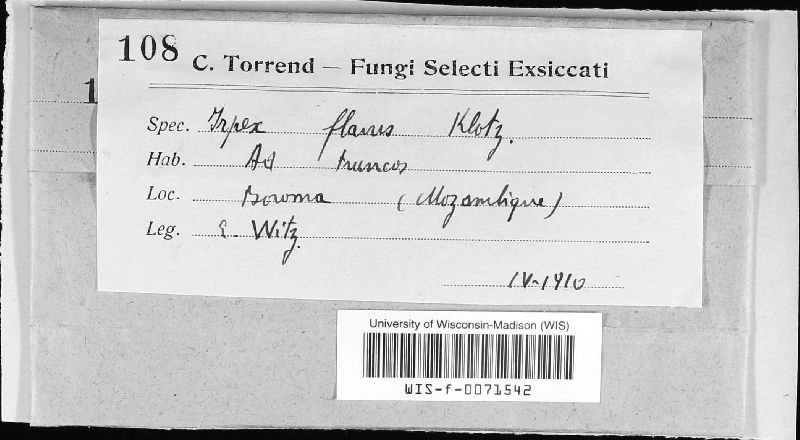 108 C. Torrend — Fungi Selecti Exsiccati
Spec. Irpex flavus Klotz.
Hab. Ad truncos
Loc. Boroma (Mozambique)
Leg. E. Witz.
IV-1910
University of Wisconsin-Madison (WIS)
WIS-f-0071542